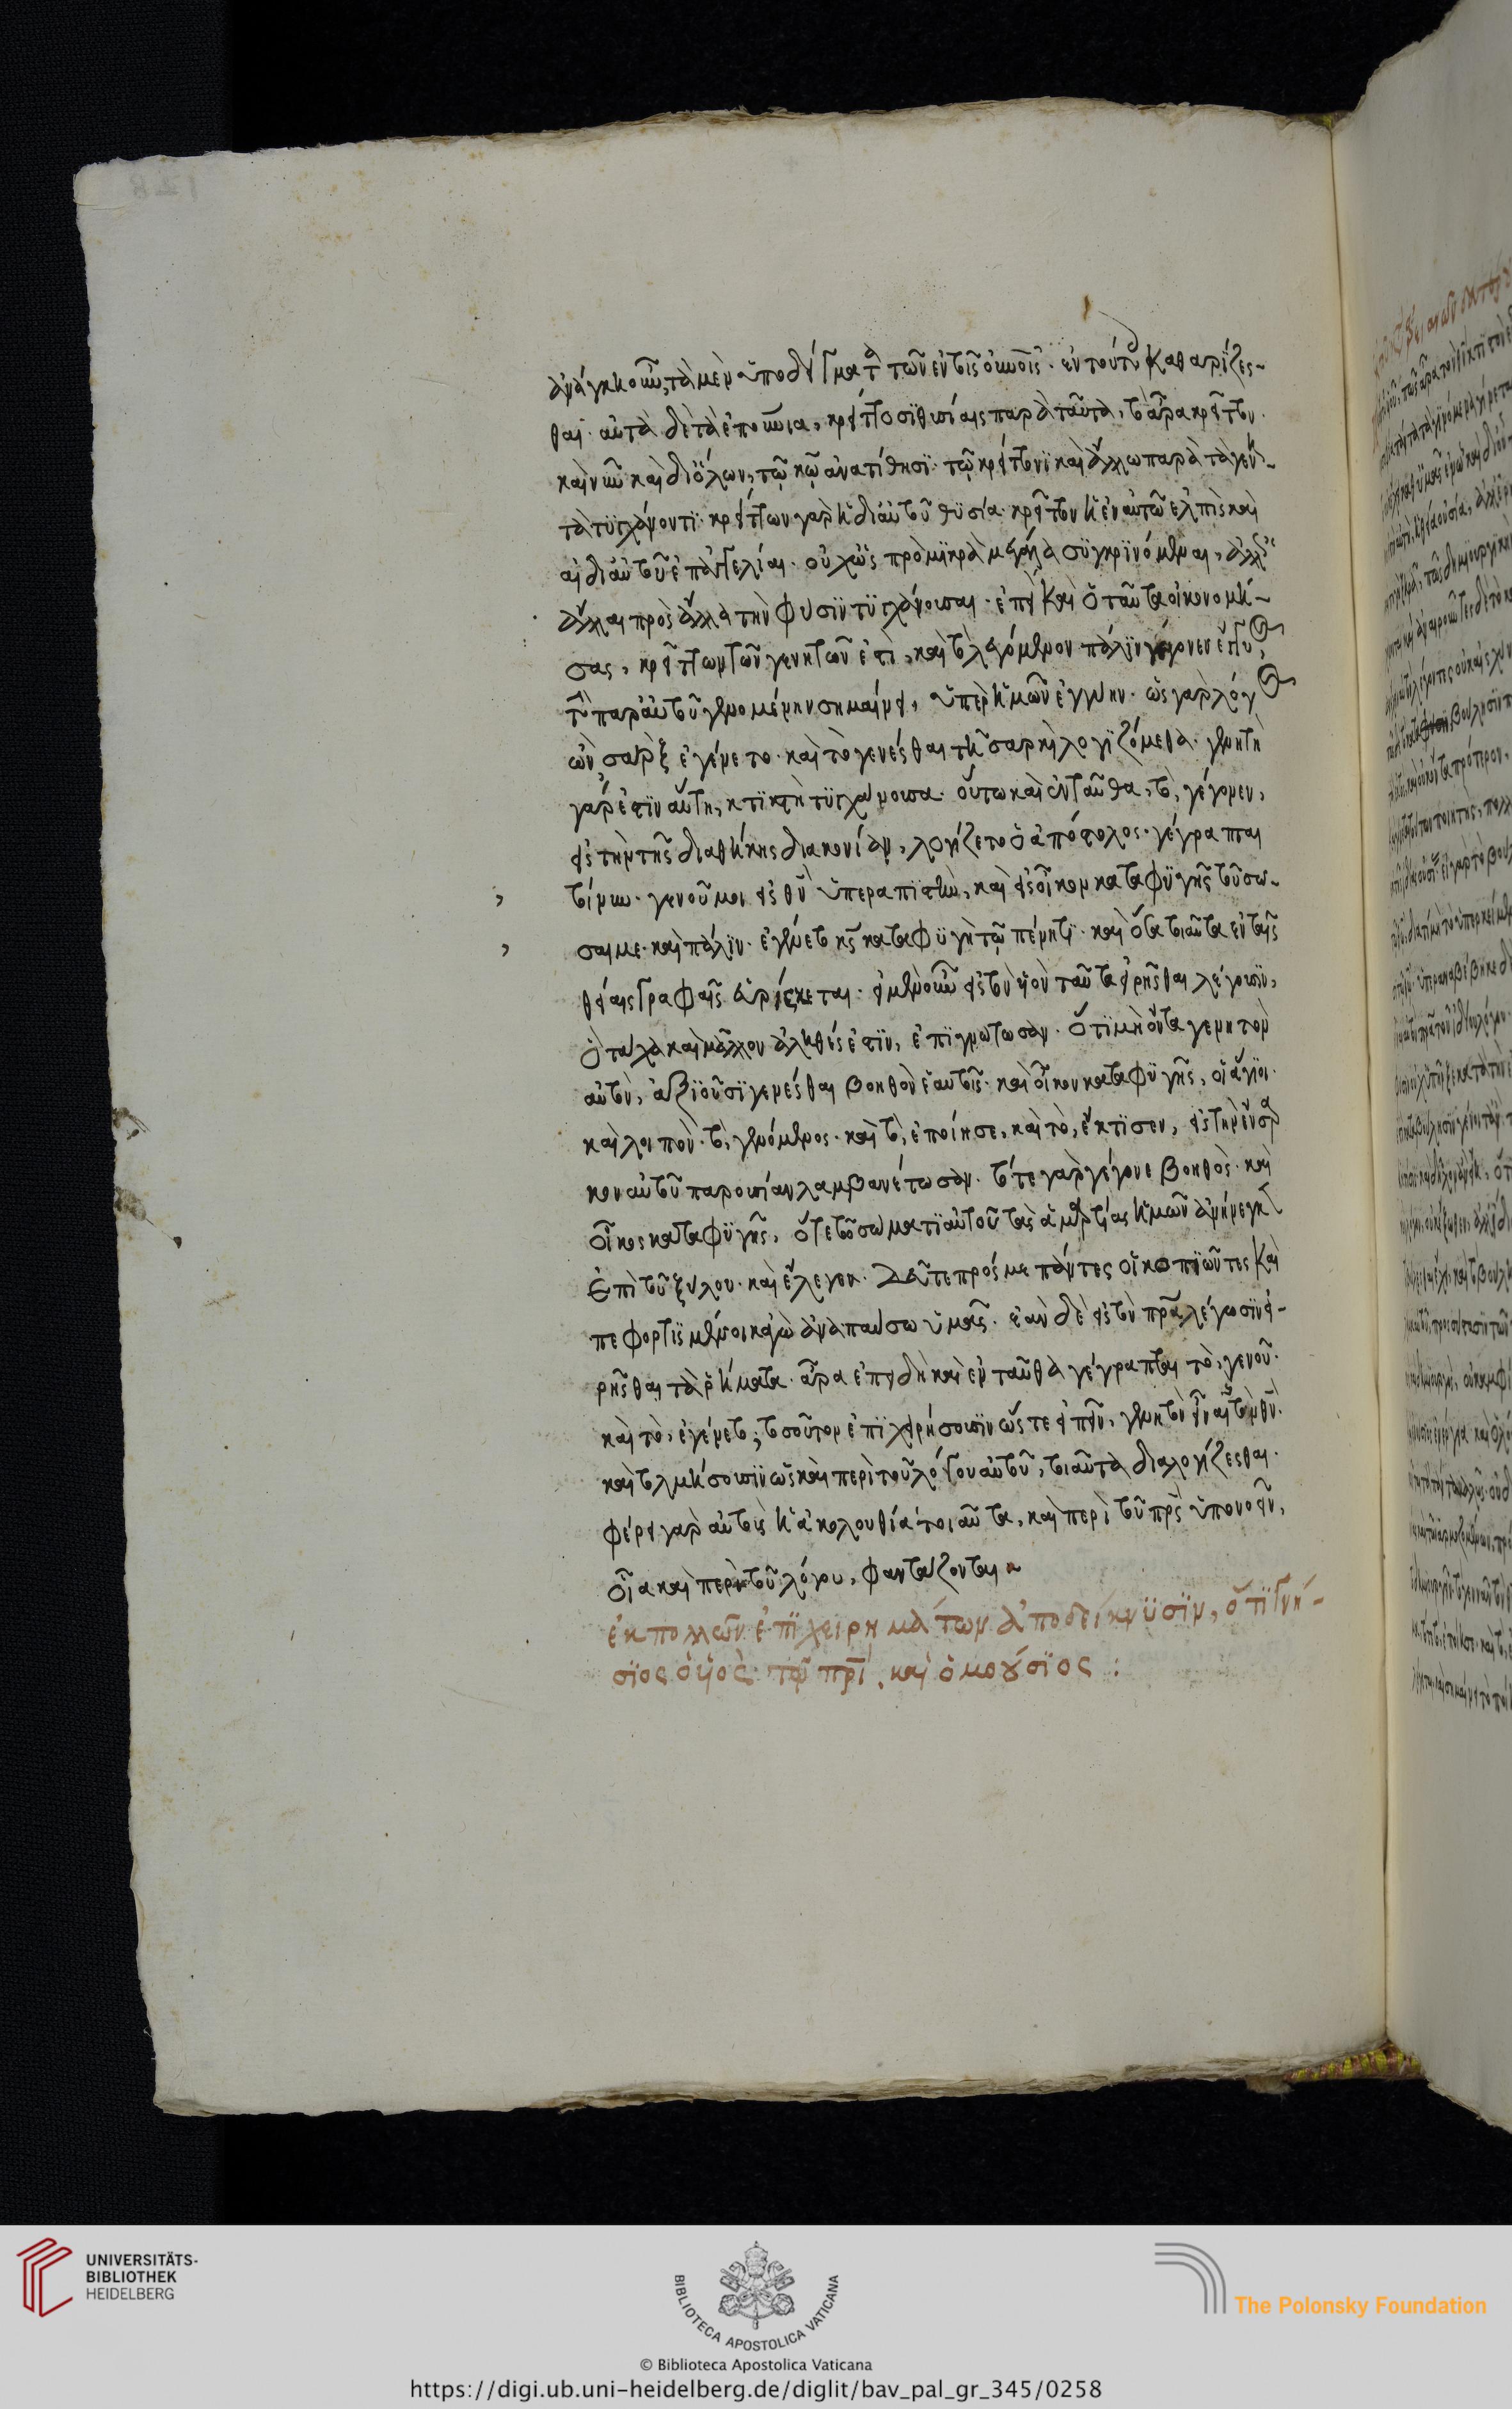 ἀνάγκη οὖν, τὰ μὲν ὑποδείγματα τῶν ἐν τοῖς οὐνοῖς· ἐν τούτοις καθαρίζες-
θαι· αὐτὰ δὲ τὰ ἐπουνια, κρείττοσι θυσίαις παρὰ ταῦτα, τὸ ἄρα κρεῖττον·
καὶ νῦν καὶ διόλων, τῶ κω ἀνατίθησι· τῶ κρείττονι καὶ ἄλλω παρὰ τὰ γεν-
τὰ τυγχάνοντι· κρείττων γὰρ ἡ δι' αὐτοῦ θυσία· κρεῖττον ἡ ἐν αὐτῶ ἐλπὶς καὶ
αἱ δι' αὐτοῦ ἐπαγγελίαι· οὐχ ὡς προ μικρὰ μεγάλα συγκρινόμεναι, ἀλλ' ὡς
ἄλλαι πρὸς ἄλλα τὴν φύσιν τυγχάνουσαι· ἐπεὶ καὶ ὁ ταῦτα οἰκονομή-
σας, κρείττων τῶν γενητῶν ἐστὶ, καὶ τὸ λεγόμενον πάλιν γέγονεν ἔγγυος,
τὴν παρ' αὐτοῦ γενομένην σημαίνει, ὑπὲρ ἡμῶν ἐγγύην· ὡς γὰρ λόγος
ὢν, σὰρξ ἐγένετο· καὶ τὸ γενέσθαι τῆ σαρκὶ λογιζόμεθα· γενητὴ
γάρ ἐστιν αὕτη, κτιστὴ τυγχάνουσα· οὕτω καὶ ἐνταῦθα, τὸ, γέγονεν,
εἰς τὴν τῆς διαθήκης διακονίαν, λογίζετο ὁ ἀπόστολος· γέγραπται
τοίνυν· γενοῦ μοι εἰς θν ὑπερασπιστὴν, καὶ εἰς οἶκον καταφυγῆς τοῦ σω-
σαι με· καὶ πάλιν· ἐγένετο κς καταφυγὴ τῶ πένητι· καὶ ὅσα τοιαῦτα ἐν ταῖς
θείαις γραφαῖς εὑρίσκεται· εἰ μὲν οὖν εἰς τὸν υἱὸν ταῦτα εἰρῆσθαι λέγουσιν,
ὃ τάχα καὶ μᾶλλον ἀληθές ἐστιν, ἐπιγνώτωσαν· ὅτι μὴ ὄντα γενητὸν
αὐτὸν, ἀξιοῦσι γενέσθαι βοηθὸν ἑαυτοῖς· καὶ οἶκον καταφυγῆς, οἱ ἅγιοι·
καὶ λοιπὸν· τὸ, γενόμενος· καὶ τὸ, ἐποίησε, καὶ τὸ, ἔκτισεν, εἰς τὴν ἔνσαρ
κον αὐτοῦ παρουσίαν λαμβανέτωσαν· τότε γὰρ γέγονε βοηθὸς· καὶ
οἶκος καταφυγῆς, ὅτε τῶ σώματι αὐτοῦ τὰς ἁμαρτίας ἡμῶν ἀνήνεγκεν
ἐπὶ τοῦ ξύλου· καὶ ἔλεγεν· Δεῦτε πρός με πάντες οἱ κοπιῶντες καὶ
πεφορτισμένοι κἀγὼ ἀναπαύσω ὑμᾶς· ἐὰν δὲ εἰς τὸν πρα λέγωσιν εἰ-
ρῆσθαι τὰ ῥήματα· ἆρα ἐπειδὴ καὶ ἐνταῦθα γέγραπται τὸ, γενοῦ·
καὶ τὸ, ἐγένετο, τοσοῦτον ἐπιχειρήσουσιν ὥστε εἰπεῖν, γενητὸν εἶναι τὸν θν·
καὶ τολμήσουσιν ὡς καὶ περὶ τοῦ λόγου αὐτοῦ, τοιαῦτα διαλογίζεσθαι·
φέρει γὰρ αὐτοὺς ἡ ἀκολουθία τοιαῦτα, καὶ περὶ τοῦ πρς ὑπονοεῖν,
οἷα καὶ περὶ τοῦ λόγου, φαντάζονται
ἐκ πολλῶν ἐπιχειρημάτων ἀποδείκνυσιν, ὅτι γνή-
σιος ὁ υἱὸς τῶ πρι, καὶ ὁμοούσιος :
UNIVERSITÄTS-
BIBLIOTHEK
HEIDELBERG
BIBLIOTECA APOSTOLICA VATICANA
The Polonsky Foundation
© Biblioteca Apostolica Vaticana
https://digi.ub.uni-heidelberg.de/diglit/bav_pal_gr_345/0258